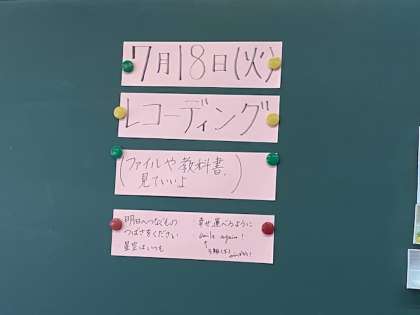 7月18日(火)
レコーディング
(ファイルや教科書、
見ていいよ)
明日へつなぐもの
つばさをください
星空はいつも
幸せ運べるように
smile again!